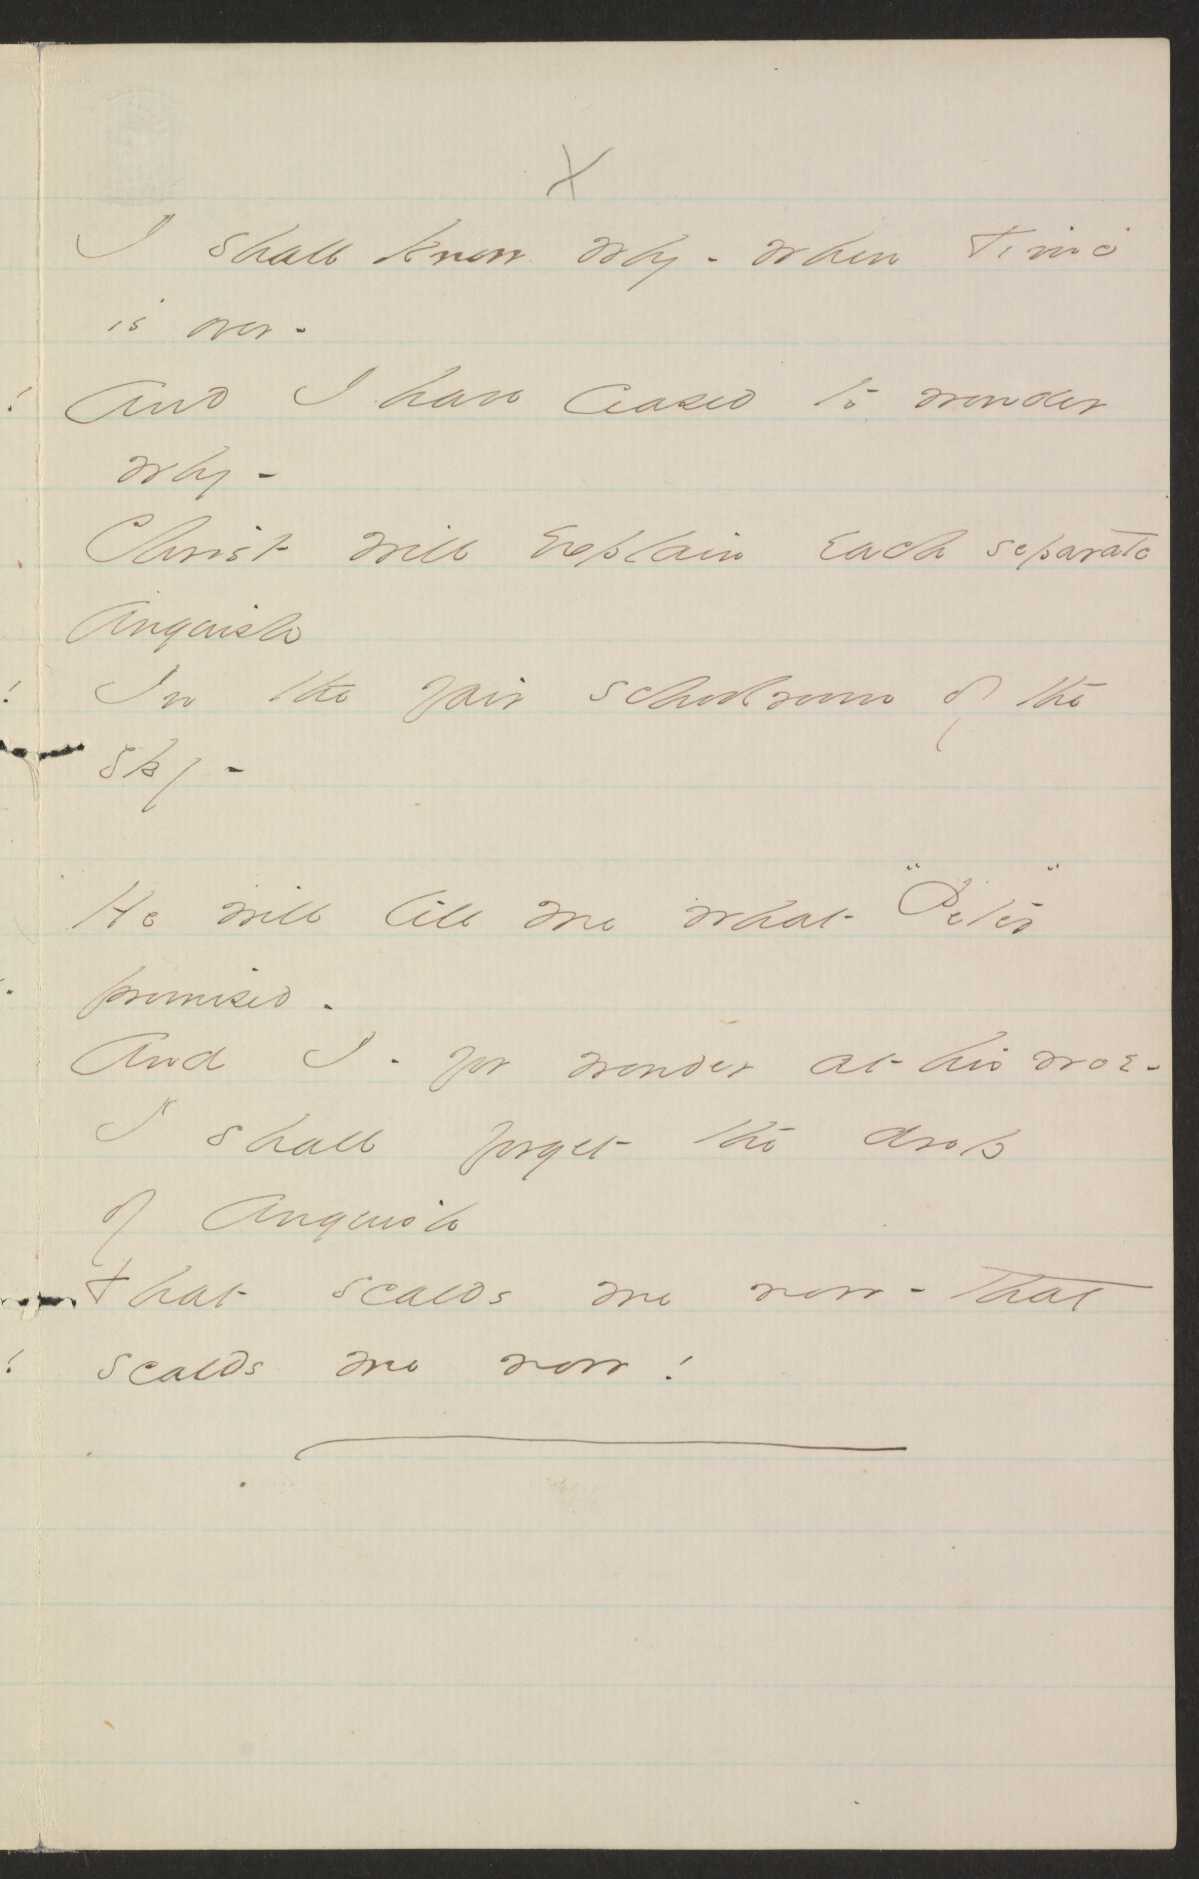 X
I shall know why - when Time
is over -
And I have ceased to wonder
why -
Christ will explain each separate
anguish
In the fair schoolroom of the
sky -
He will tell me what "Peter"
promised -
And I - for wonder at his woe -
I shall forget the drop
of anguish
That scalds me now - that
scalds me now!